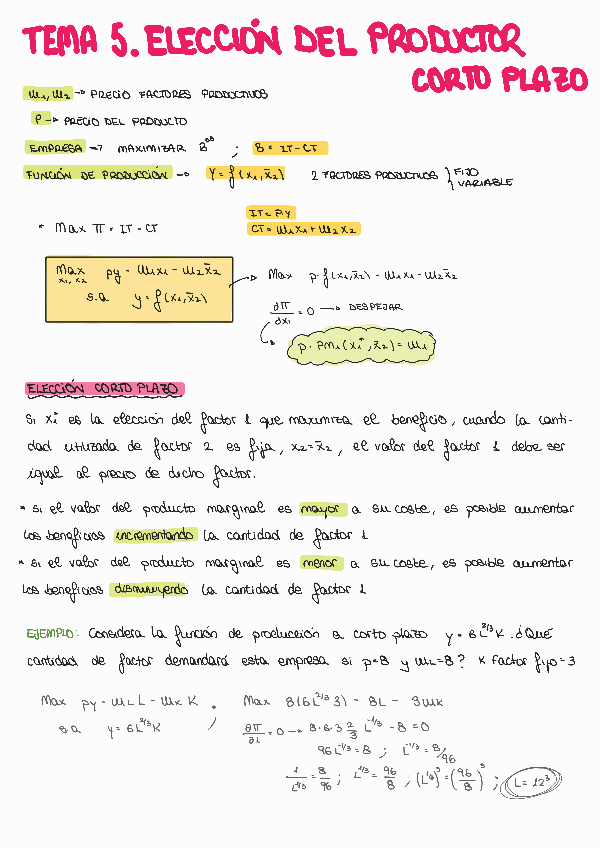 TEMA 5. ELECCIÓN DEL PRODUCTOR
CORTO PLAZO
w₁, w₂ → PRECIO FACTORES PRODUCTIVOS
P → PRECIO DEL PRODUCTO
EMPRESA → MAXIMIZAR Bºº ; B = IT - CT
FUNCIÓN DE PRODUCCIÓN → Y = f(x₁, x̄₂) 2 FACTORES PRODUCTIVOS } FIJO
VARIABLE
IT = P·Y
* Max π = IT - CT CT = w₁x₁ + w₂x₂
Max py - w₁x₁ - w₂x̄₂ → Max p·f(x₁, x̄₂) - w₁x₁ - w₂x̄₂
x₁, x₂
s.a y = f(x₁, x̄₂)
∂π/∂x₁ = 0 → DESPEJAR
p · PM₁(x₁*, x̄₂) = w₁
ELECCIÓN CORTO PLAZO
Si x₁* es la elección del factor 1 que maximiza el beneficio, cuando la canti-
dad utilizada de factor 2 es fija, x₂ = x̄₂, el valor del factor 1 debe ser
igual al precio de dicho factor.
* si el valor del producto marginal es mayor a su coste, es posible aumentar
los beneficios incrementando la cantidad de factor 1
* si el valor del producto marginal es menor a su coste, es posible aumentar
los beneficios disminuyendo la cantidad de factor 1
EJEMPLO: Considera la función de producción a corto plazo y = 6L^2/3 K. ¿Qué
cantidad de factor demandará esta empresa si p=8 y wL=8? K factor fijo=3
Max py - wL L - wK K ; Max 8(6L^2/3 3) - 8L - 3wK
s.a y = 6L^2/3 K
∂π/∂L = 0 → 8·6·3 2/3 L^-1/3 - 8 = 0
96L^-1/3 = 8 ; L^-1/3 = 8/96
1/L^1/3 = 8/96 ; L^1/3 = 96/8 ; (L^1/3)³ = (96/8)³ ; L = 12³